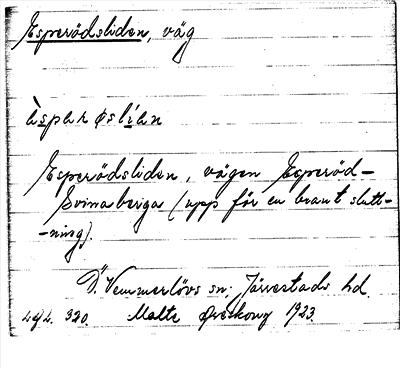 Esperödsliden, väg
èspǝr øslíǝn
Esperödsliden, vägen Esperöd-
Svinaberga (upp för en brant slutt-
-ning).
Ö. Vemmerlövs sn. Järrestads hd.
Malte Areskoug 1923